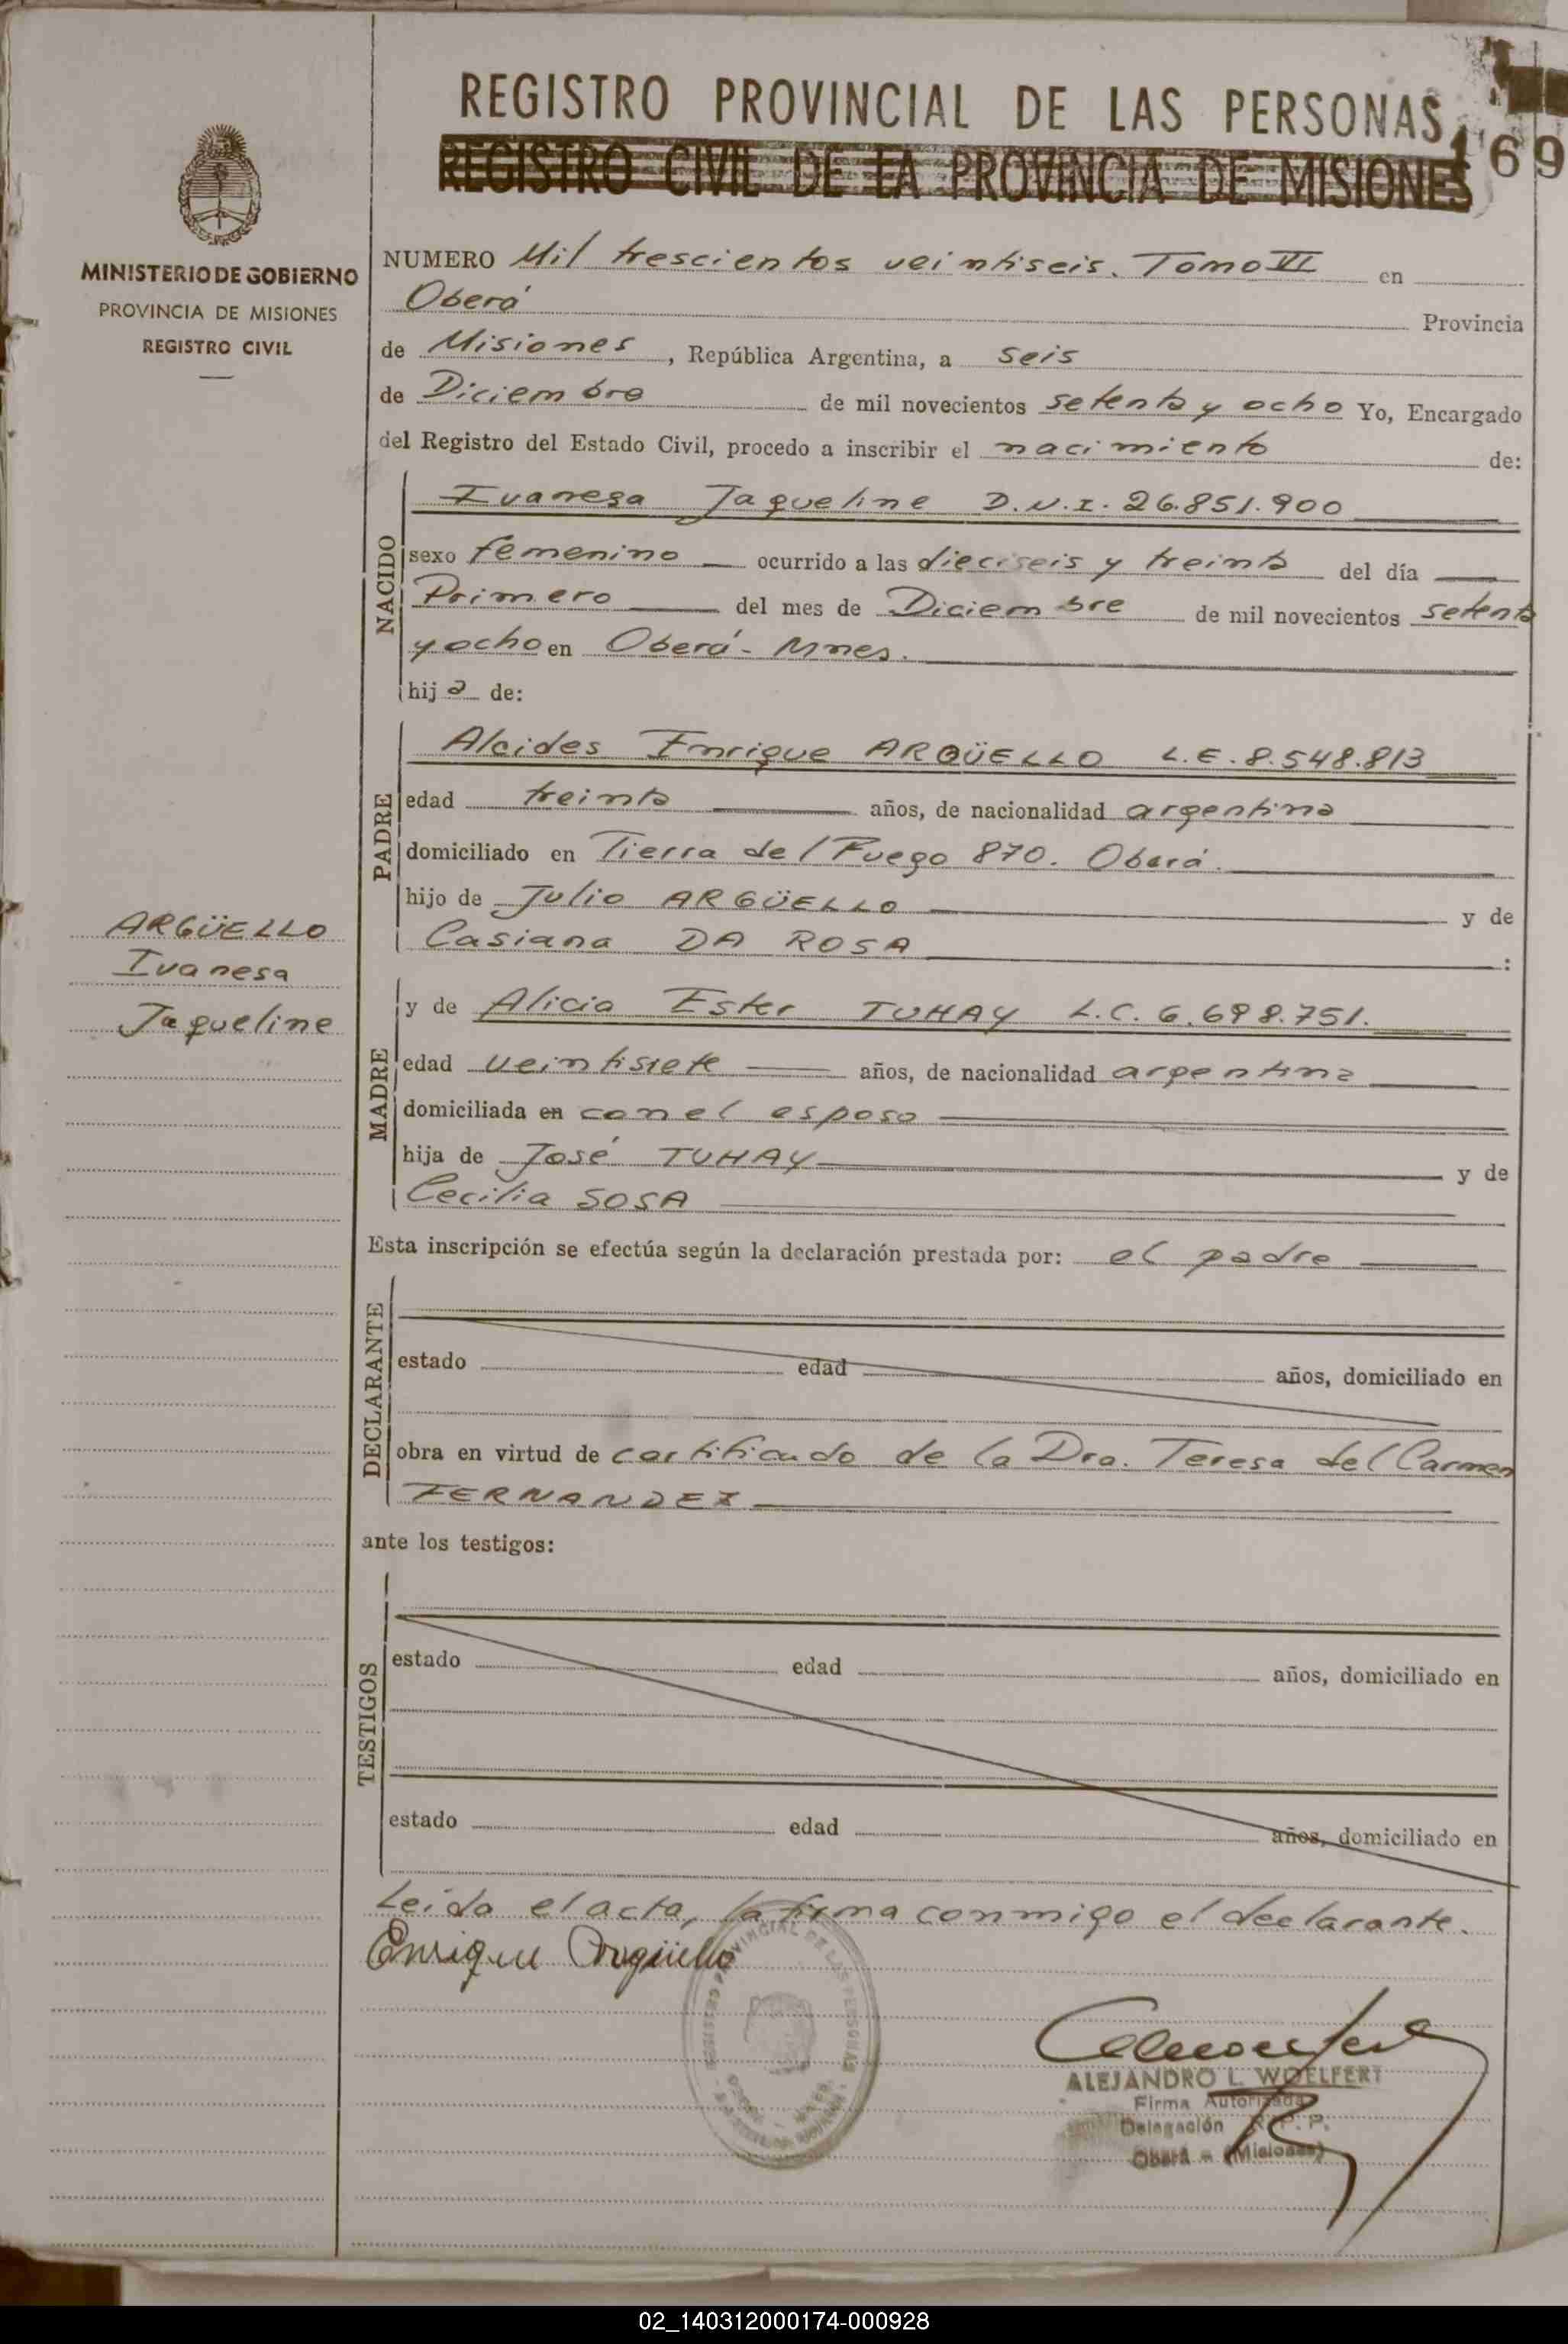 REGISTRO PROVINCIAL DE LAS PERSONAS
REGISTRO CIVIL DE LA PROVINCIA DE MISIONES
169
MINISTERIO DE GOBIERNO
PROVINCIA DE MISIONES
REGISTRO CIVIL
NUMERO Mil trescientos veintiseis. Tomo VI en
Oberá Provincia
de Misiones, República Argentina, a seis
de Diciembre de mil novecientos setenta y ocho Yo, Encargado
del Registro del Estado Civil, procedo a inscribir el nacimiento de:
NACIDO
Ivanesa Jaqueline D.N.I. 26.851.900
sexo femenino ocurrido a las dieciseis y treinta del día
Primero del mes de Diciembre de mil novecientos setenta
y ocho en Oberá - Mnes.
hija de:
PADRE
Alcides Enrique ARGÜELLO L.E. 8.548.813
edad treinta años, de nacionalidad argentina
domiciliado en Tierra del Fuego 870. Oberá.
hijo de Julio ARGÜELLO y de
Casiana DA ROSA :
ARGÜELLO
Ivanesa
Jaqueline
MADRE
y de Alicia Ester TUHAY L.C. 6.698.751.
edad veintisiete años, de nacionalidad argentina
domiciliada en con el esposo
hija de José TUHAY y de
Cecilia SOSA
Esta inscripción se efectúa según la declaración prestada por: el padre
DECLARANTE
estado edad años, domiciliado en
obra en virtud de certificado de la Dra. Teresa del Carmen
FERNANDEZ
ante los testigos:
TESTIGOS
estado edad años, domiciliado en
estado edad años, domiciliado en
Leída el acta, la firma conmigo el declarante.
Enrique Argüello
ALEJANDRO L. WOELFERT
Firma Autorizada
Delegación R. P. P.
Oberá - (Misiones)
02_140312000174-000928